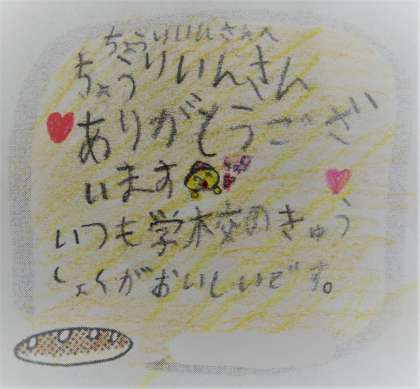 ちょうりいんさんへ
ちょうりいんさん
ありがとうござ
います
いつも学校のきゅう
しょくがおいしいです。